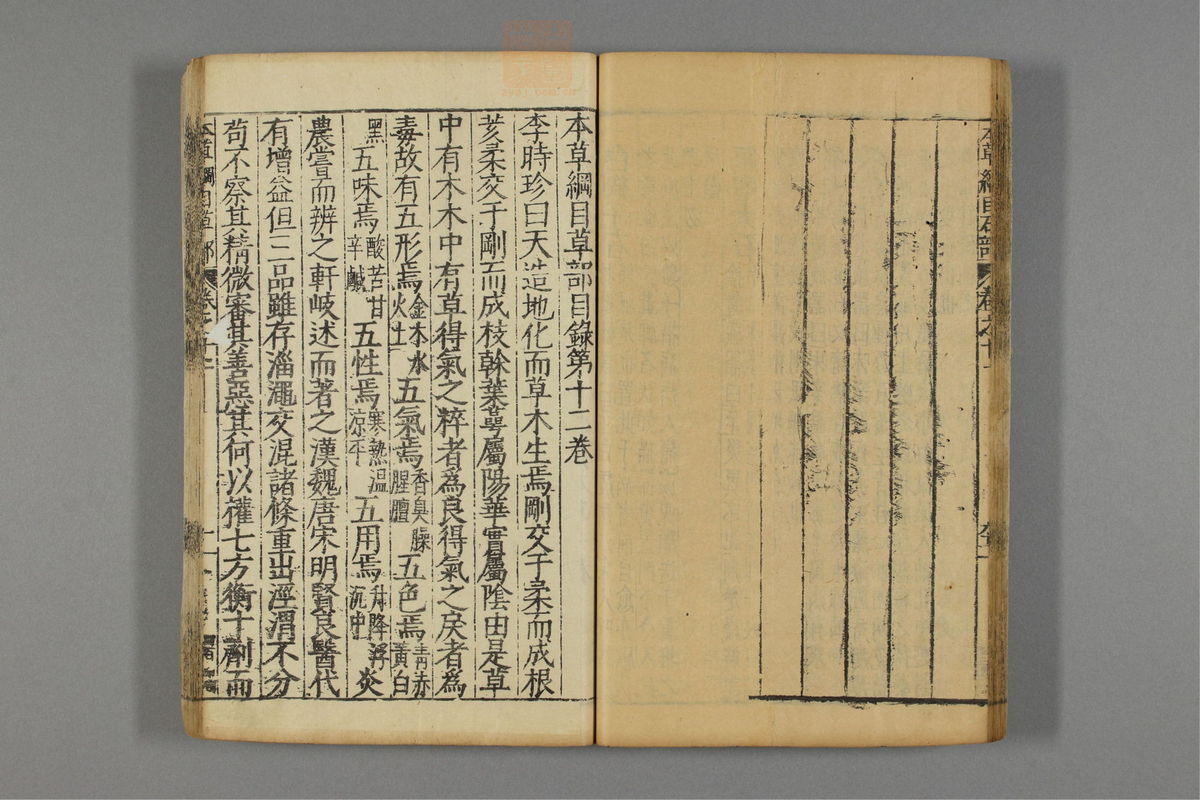 本草綱目石部
卷之十一
本草綱目草部目錄第十二卷
李時珍曰天造地化而草木生焉剛交于柔而成根
荄柔交于剛而成枝幹葉萼屬陽華實屬陰由是草
中有木木中有草得氣之粹者爲良得氣之戾者爲
毒故有五形焉金木水火土五氣焉香臭臊腥膻五色焉青赤黃白
黑五味焉酸苦甘辛鹹五性焉寒熱溫涼平五用焉升降浮沉中炎
農嘗而辨之軒岐述而著之漢魏唐宋明賢良醫代
有增益但三品雖存淄澠交混諸條重出涇渭不分
苟不察其精微審其善惡其何以權七方衡十劑而
本草綱目草部
卷之十二